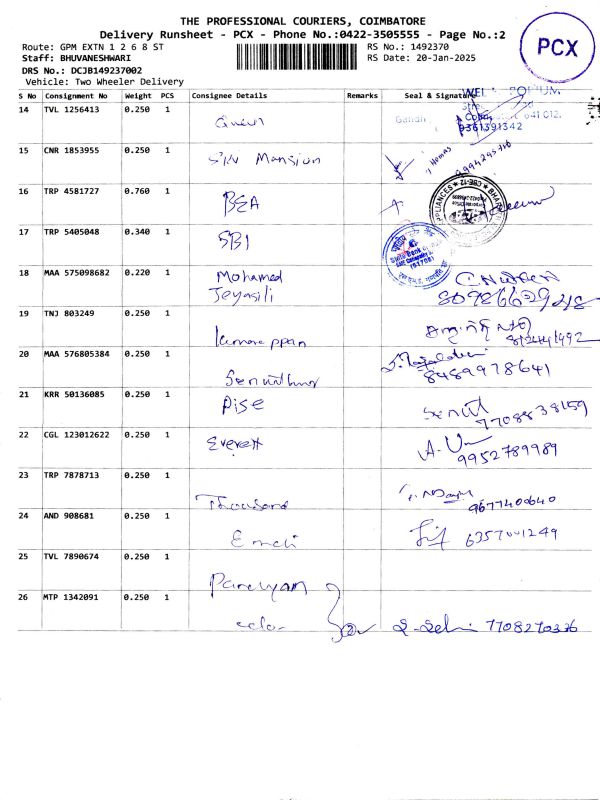 THE PROFESSIONAL COURIERS, COIMBATORE
Delivery Runsheet - PCX - Phone No.:0422-3505555 - Page No.:2
Route: GPM EXTN 1 2 6 8 ST
RS No.: 1492370
Staff: BHUVANESHWARI
RS Date: 20-Jan-2025
DRS No.: DCJB149237002
Vehicle: Two Wheeler Delivery
PCX
S No Consignment No Weight PCS Consignee Details Remarks Seal & Signature
14 TVL 1256413 0.250 1
9361391342
15 CNR 1853955 0.250 1 S/N Mansion
16 TRP 4581727 0.760 1 BEA
17 TRP 5405048 0.340 1 SBI
18 MAA 575098682 0.220 1 Mohamed
Jeyasili
8098662948
19 TNJ 803249 0.250 1 kumarappan
20 MAA 576805384 0.250 1 Senthil
8489978641
21 KRR 50136085 0.250 1 Pise
7708838159
22 CGL 123012622 0.250 1 Everest
9952789989
23 TRP 7878713 0.250 1 Thousand
9677400640
24 AND 908681 0.250 1
6357001249
25 TVL 7890674 0.250 1
26 MTP 1342091 0.250 1 S. Selvi 7708270336